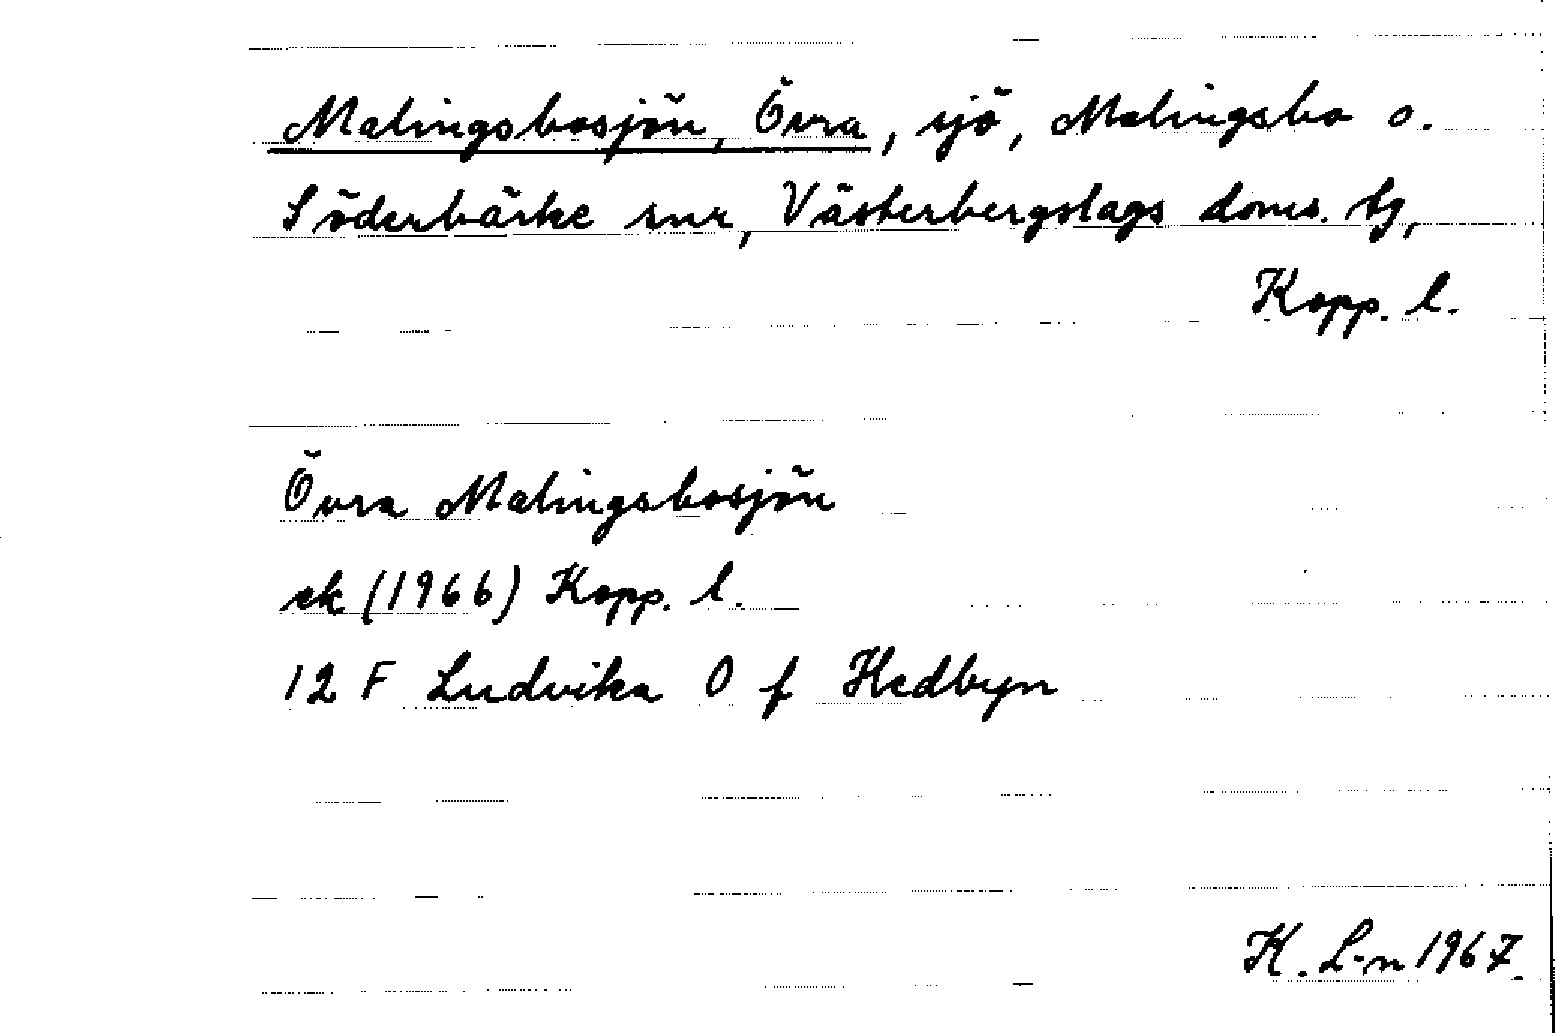 Malingsbosjön, Övra, sjö, Malingsbo o.
Söderbärke snr, Västerbergslags doms. tg,
Kopp. l.
Övra Malingsbosjön
ek (1966) Kopp. l.
12 F Ludvika 0 f Hedbyn
K. L-n 1967.